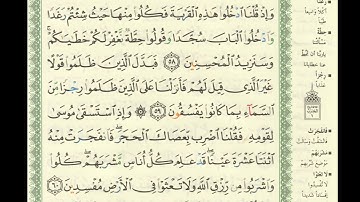 وَإِذْ قُلْنَا ادْخُلُوا هَٰذِهِ الْقَرْيَةَ فَكُلُوا مِنْهَا حَيْثُ شِئْتُمْ رَغَدًا
وَادْخُلُوا الْبَابَ سُجَّدًا وَقُولُوا حِطَّةٌ نَّغْفِرْ لَكُمْ خَطَايَاكُمْ
وَسَنَزِيدُ الْمُحْسِنِينَ ٥٨ فَبَدَّلَ الَّذِينَ ظَلَمُوا قَوْلًا
غَيْرَ الَّذِي قِيلَ لَهُمْ فَأَنزَلْنَا عَلَى الَّذِينَ ظَلَمُوا رِجْزًا مِّنَ
السَّمَاءِ بِمَا كَانُوا يَفْسُقُونَ ٥٩ وَإِذِ اسْتَسْقَىٰ مُوسَىٰ
لِقَوْمِهِ فَقُلْنَا اضْرِب بِّعَصَاكَ الْحَجَرَ فَانفَجَرَتْ مِنْهُ
اثْنَتَا عَشْرَةَ عَيْنًا قَدْ عَلِمَ كُلُّ أُنَاسٍ مَّشْرَبَهُمْ كُلُوا
وَاشْرَبُوا مِن رِّزْقِ اللَّهِ وَلَا تَعْثَوْا فِي الْأَرْضِ مُفْسِدِينَ ٦٠